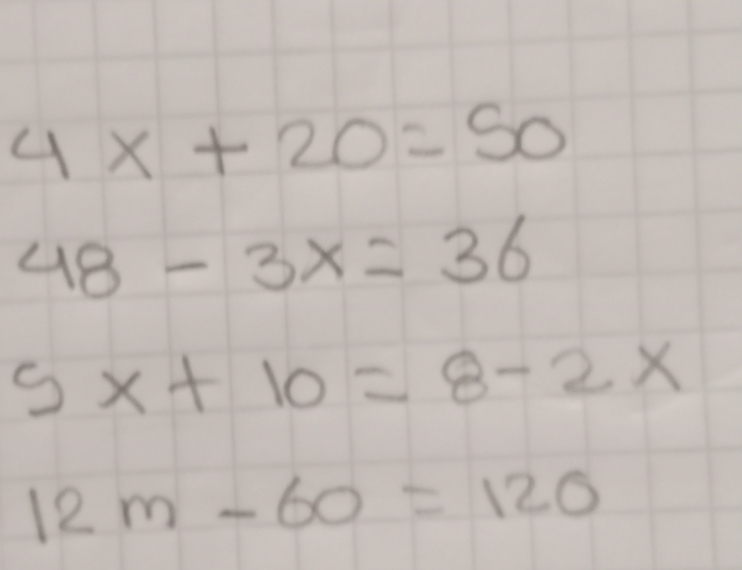 4x + 20 = 50
48 - 3x = 36
5x + 10 = 8 - 2x
12m - 60 = 120